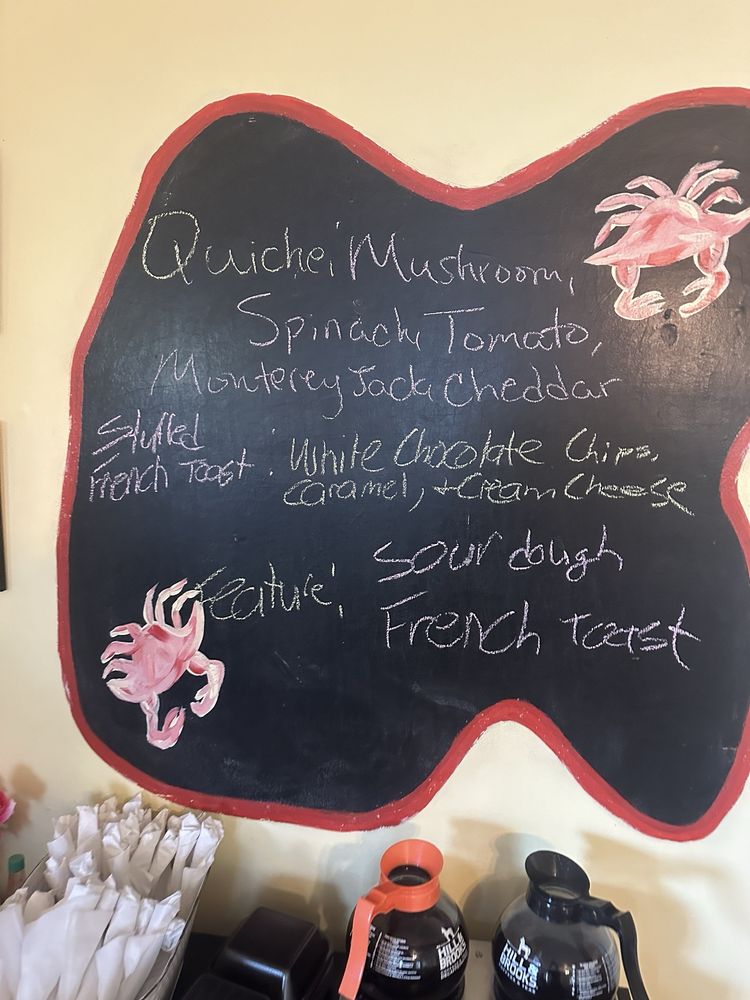 Quiche: Mushroom,
Spinach, Tomato,
Monterey Jack, Cheddar
Stuffed
French Toast : White Chocolate Chips,
caramel, + Cream Cheese
Feature: Sour dough
French Toast
HILL &
BROOKS
HILL &
BROOKS